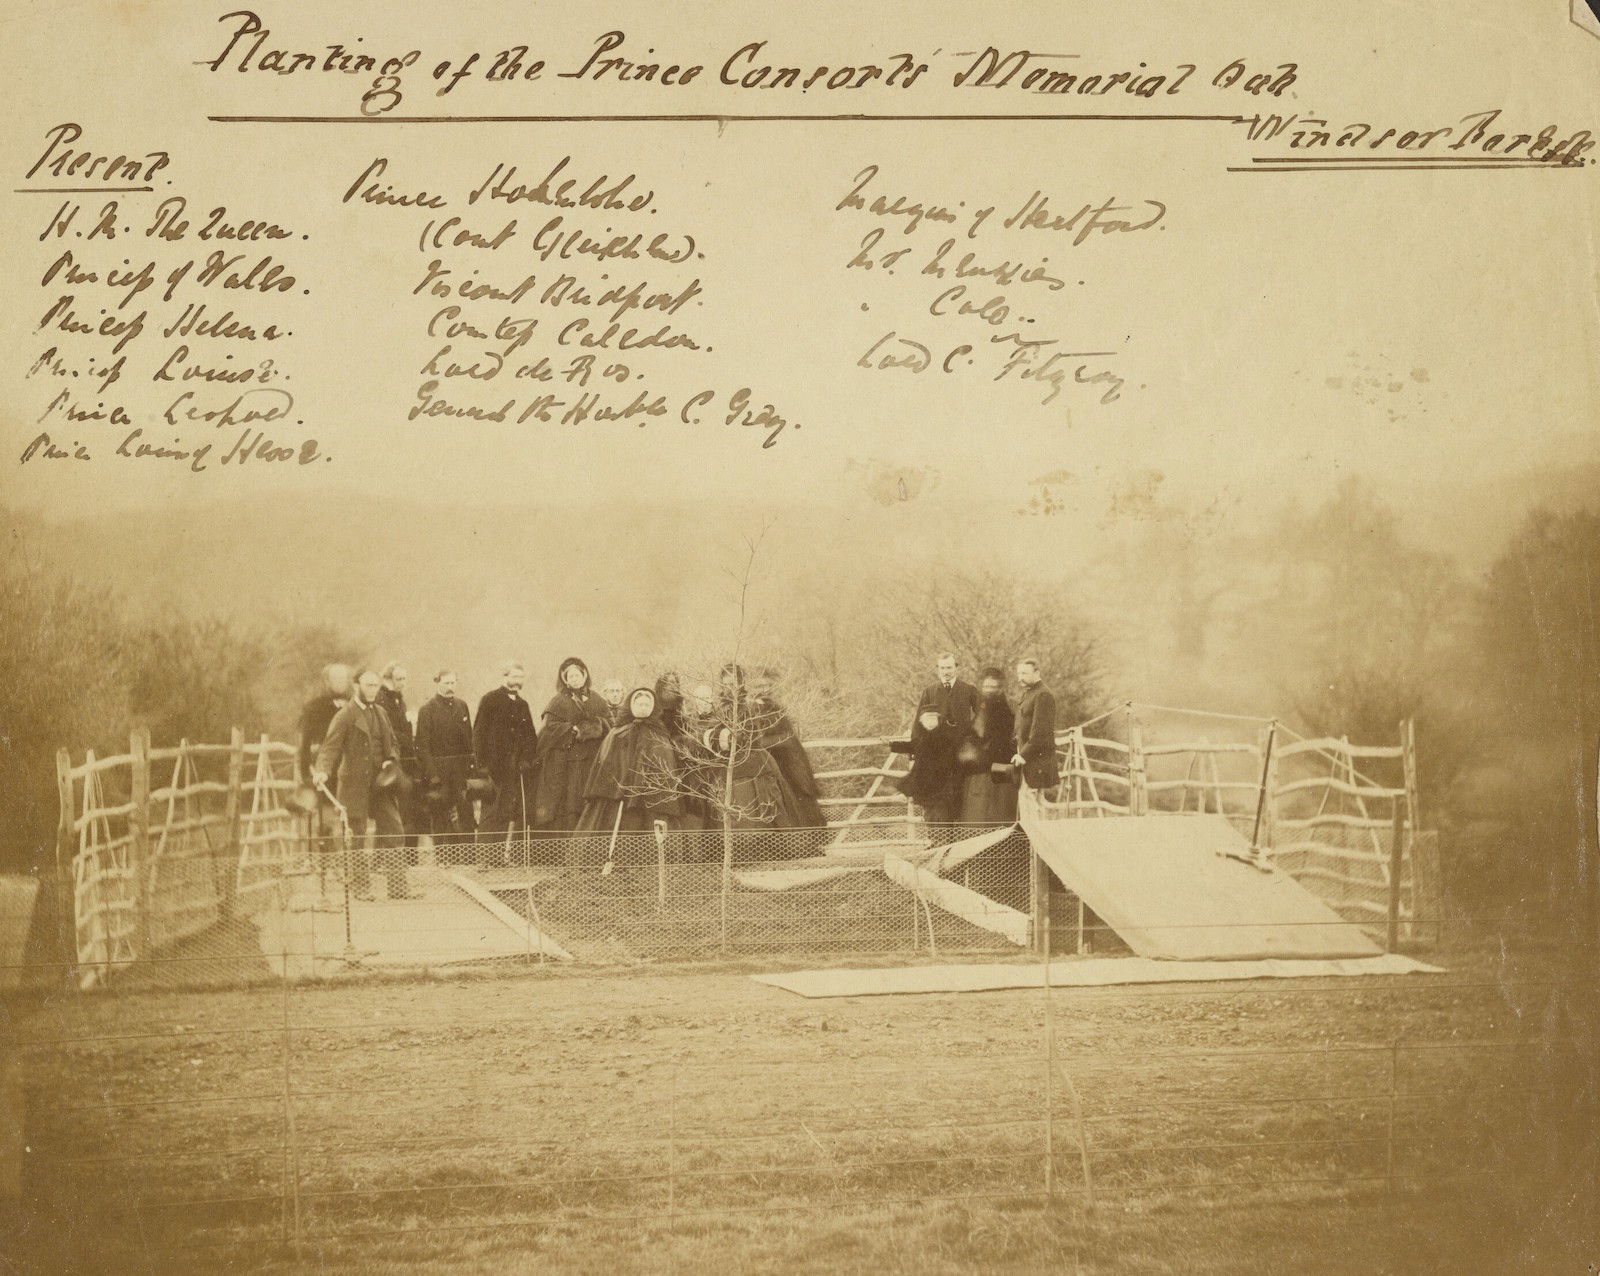 Planting of the Prince Consort's Memorial Oak
Windsor Forest.
Present.
H. M. The Queen.
Princess of Wales.
Princess Helena.
Princess Louise.
Prince Leopold.
Prince Louis of Hesse.
Prince Hohenlohe.
(Count Gleichen).
Viscount Bridport.
Countess Caledon.
Lord de Ros.
General the Honble C. Grey.
Marquis of Hertford.
Mr. Menzies.
" Cole..
Lord C. Fitzroy.